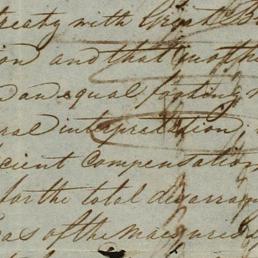 treaty with Great
ion and that
an equal footing
ral interpretation,
cient compensation
for the total disarran
of the